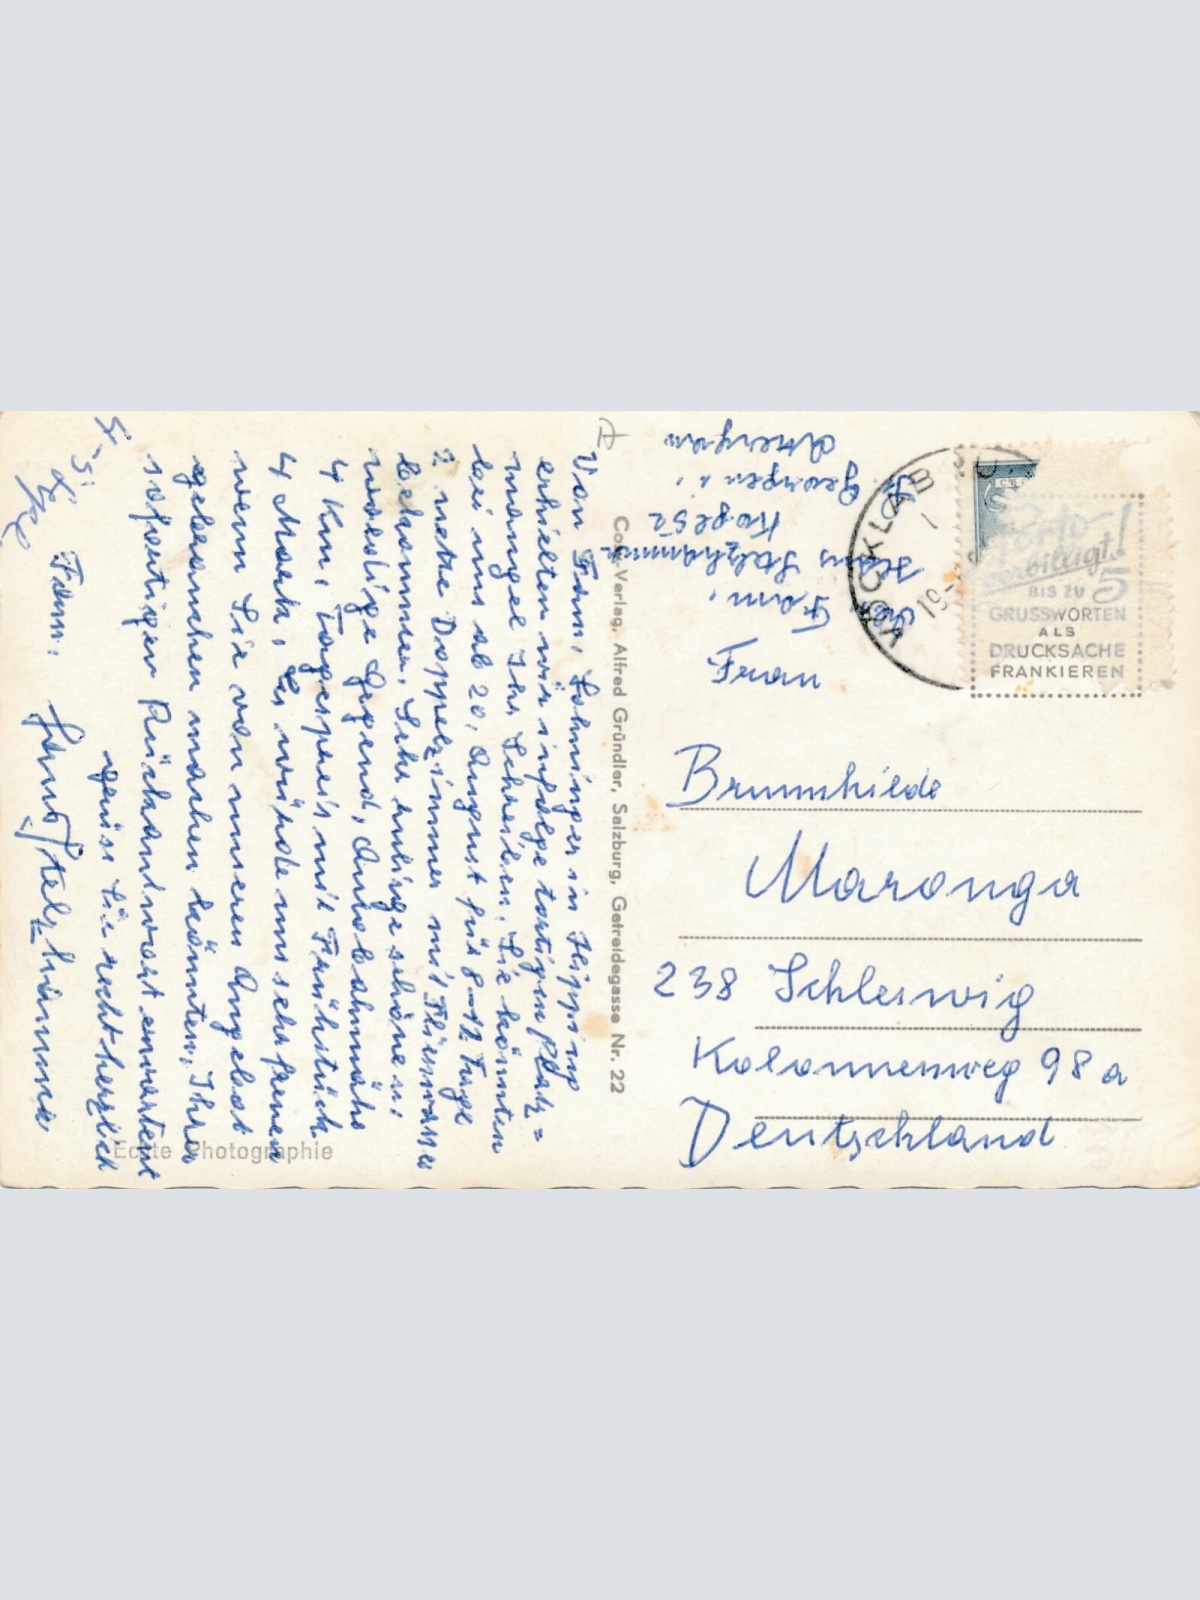 Von Fam. Lohninger in Hipping
erhielten wir infolge dortigen Platz=
mangel Ihr Schreiben. Sie könnten
bei uns ab 20. August für 8-12 Tage
2 nette Doppelzimmer mit Fliesswasser
bekommen. Sehr ruhige schöne u.
waldige Gegend, Autobahnnähe
4 Km, Tagespreis mit Frühstück
4 Mark. Es würde uns sehr freuen
wenn Sie von unseren Angebot
gebrauchen machen könnten. Ihre
sofortigen Rückantwort erwartend
grüsst Sie recht herzlich
Fam. Hans Stelzhammer
Echte Photographie
Cosy-Verlag, Alfred Gründler, Salzburg, Getreidegasse Nr. 22
Fam.
Hans Stelzhammer
Kogl 52
St. Georgen i.
Attergau
VÖCKLAB
19
Porto-
verbilligt!
BIS ZU 5
GRUSSWORTEN
ALS
DRUCKSACHE
FRANKIEREN
Frau
Brunnhilde
Maronga
238 Schleswig
Kolonnenweg 98 a
Deutschland